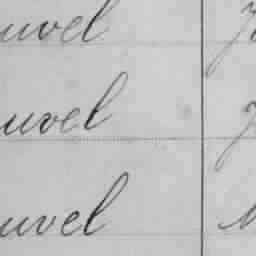 uvel
uvel
uvel